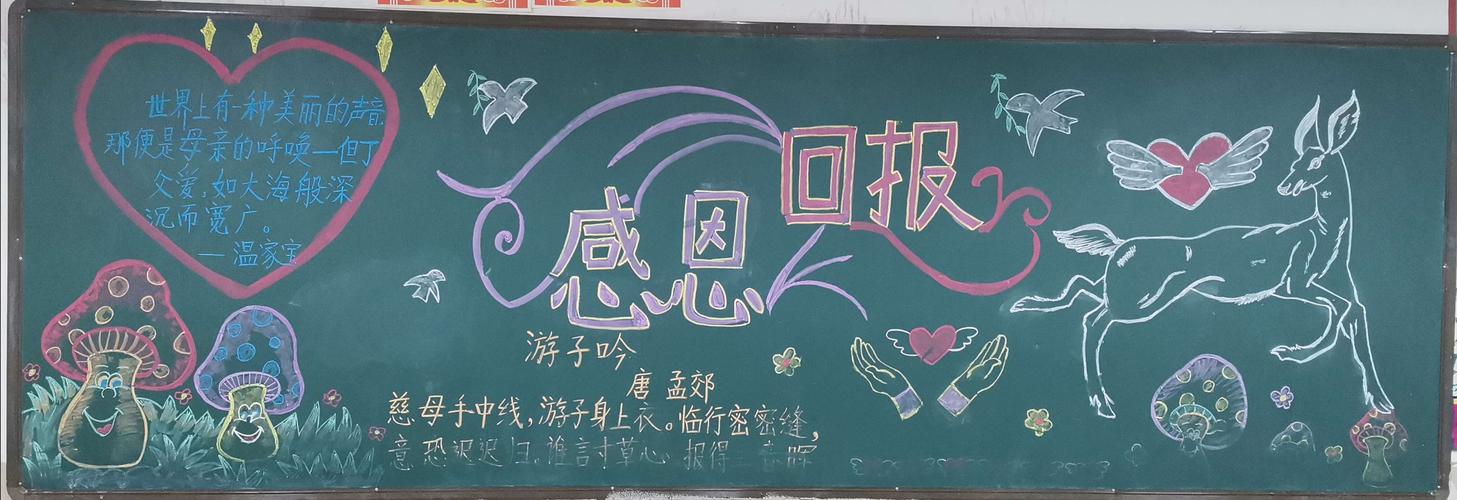 世界上有一种美丽的声音
那便是母亲的呼唤—但丁
父爱，如大海般深
沉而宽广。
—温家宝
感恩
回报
游子吟
唐 孟郊
慈母手中线，游子身上衣。临行密密缝，
意恐迟迟归。谁言寸草心 报得三春晖